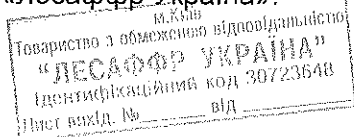 «Лесаффр Україна».
м.Київ
Товариство з обмеженою відповідальністю
“ЛЕСАФФР УКРАЇНА”
Ідентифікаційний код 30723648
Лист вихід. № ______ від ______